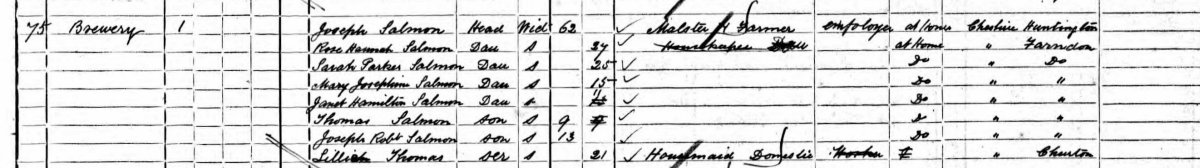 75 Brewery 1 Joseph Salmon Head Wid 62 Malster & Farmer employer at home Cheshire Huntington
Rose Hannah Salmon Dau s 27 Housekeeper at Home " Farndon
Sarah Parker Salmon Dau s 25 Do " Do
Mary Josephine Salmon Dau s 15 Do " "
Janet Hamilton Salmon Dau s 11 Do " "
Thomas Salmon son s 9 " "
Joseph Robt Salmon son s 13 Do " "
Thomas ser s 21 Housemaid Domestic Worker " Churton